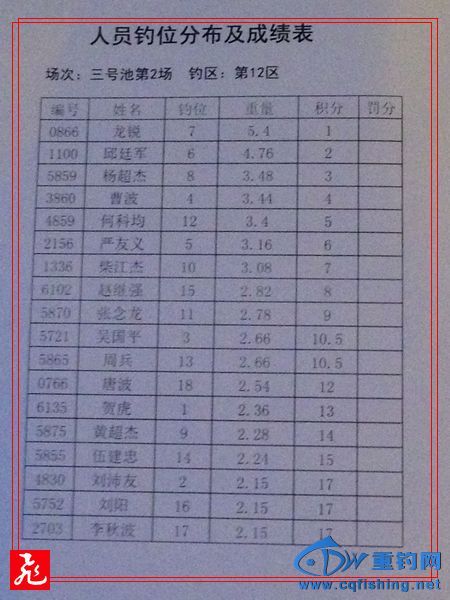 人员钓位分布及成绩表
场次：三号池第2场 钓区：第12区
编号 姓名 钓位 重量 积分 罚分
0866 龙锐 7 5.4 1
1100 邱廷军 6 4.76 2
5859 杨超杰 8 3.48 3
3860 曹波 4 3.44 4
4859 何科均 12 3.4 5
2156 严友义 5 3.16 6
1336 柴江杰 10 3.08 7
6102 赵继强 15 2.82 8
5870 张念龙 11 2.78 9
5721 吴国平 3 2.66 10.5
5865 周兵 13 2.66 10.5
0766 唐波 18 2.54 12
6135 贺虎 1 2.36 13
5875 黄超杰 9 2.28 14
5855 伍建忠 14 2.24 15
4830 刘沛友 2 2.15 17
5752 刘阳 16 2.15 17
2703 李秋波 17 2.15 17
DW 重钓网
www.cqfishing.net